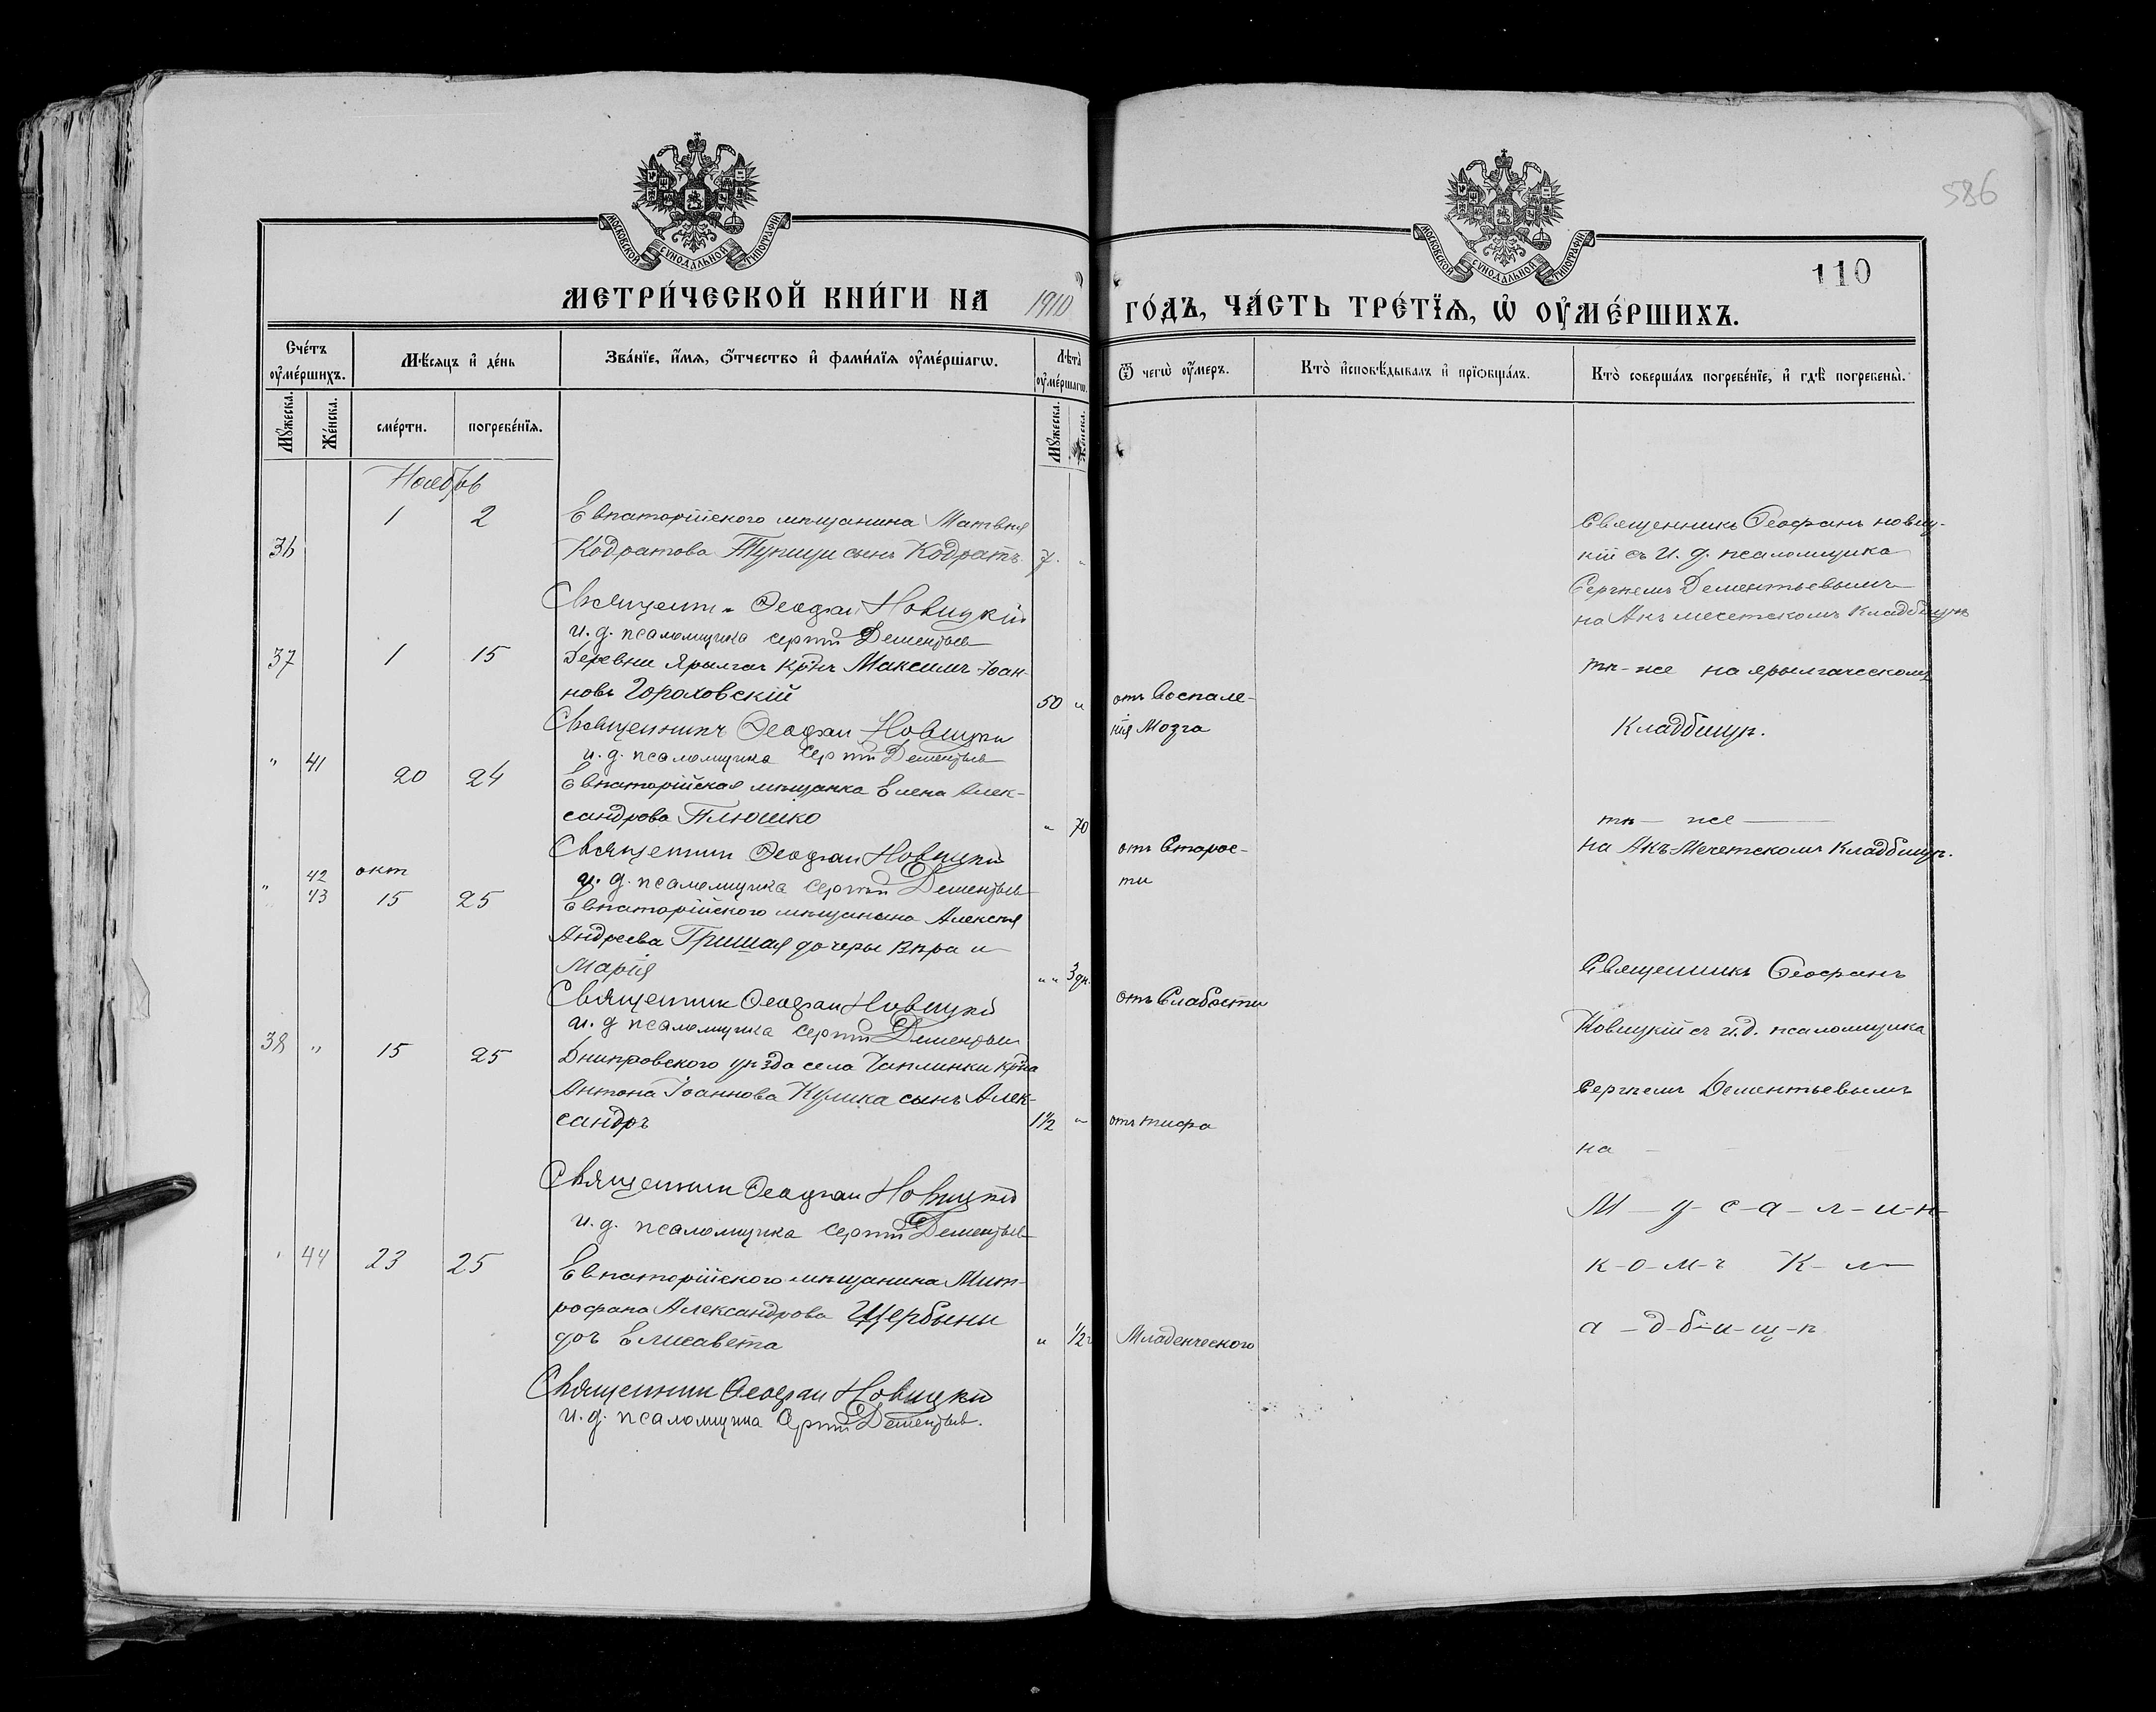 МОСКОВСКОЙ СѴНОДАЛЬНОЙ ТИПОГРАФІИ
МОСКОВСКОЙ СѴНОДАЛЬНОЙ ТИПОГРАФІИ
586
110
МЕТРИ́ЧЕСКОЙ КНИ́ГИ НА 1910 ГО́ДЪ, ЧА́СТЬ ТРЕ́ТЇѦ, Ѡ҆ ОУ҆МЕ́РШИХЪ.
Сче́тъ оу҆ме́ршихъ.
Мѣ́сяцъ и҆ де́нь
Зва́нїе, и҆́мѧ, ѻ҆́тчество и҆ фами́лїѧ оу҆ме́ршагѡ.
Лѣ́та оу҆ме́ршагѡ.
Ѿ чегѡ̀ оу҆́меръ.
Кто̀ и҆сповѣ́дывалъ и҆ прїѡбща́лъ.
Кто̀ соверша́лъ погребе́нїе, и҆ гдѣ̀ погребены̀.
Му́жеска.
Же́нска.
сме́рти.
погребе́нїѧ.
Му́жеска.
Же́нска.
Ноябрь
1 2 Евпаторійского мѣщанина Матвѣя
36 Кодратова Тупици сынъ Кодратъ. 7. "
Священникъ Ѳеофанъ Новиц-
кій съ и. д. псаломщика
Сергѣемъ Дементьевымъ
на Акъ мечетскомъ Кладбищѣ
Священн. Ѳеофан Новицкій
и. д. псаломщика Сергій Дементьев
37 1 15 Деревни Ярылгач Крн̃ъ Максимъ Іоан-
новъ Гороховскій 50 " отъ Воспале-
нія Мозга
тѣ-же на ярылгачскомъ
Кладбищѣ.
Священникъ Ѳеофан Новицкій
и. д. псаломщика Сергій Дементьев
" 41 20 24 Евпаторійская мѣщанка Елена Алек-
сандрова Плюшко " 70
отъ Старос-
ти
тѣ - же
на Акъ-Мечетскомъ Кладбищѣ.
Священник Ѳеофан Новицкій
и. д. псаломщика Сергій Дементьев
окт
" 42 43 15 25 Евпаторійского мѣщанина Алексѣя
Андреева Гришая дочеры Вѣра и
Марія " " 3 дн.
отъ Слабости
Священникъ Ѳеофанъ
Новицкій съ и.д. псаломщика
Сергѣемъ Дементьевымъ
на
М - у - с - а - л - и - н -
к - о - м - ъ К - л
а - д - б - и - щ - ѣ
Священник Ѳеофан Новицкій
и. д псаломщика Сергій Дементьев
38 " 15 25 Днипровского уѣзда села Чаплинки кр̃на
Антона Іоаннова Кулика сынъ Алек-
сандръ 1½ " отъ тифа
Священник Ѳеофан Новицкій
и. д. псаломщика Сергій Дементьев
" 44 23 25 Евпаторійского мѣщанина Мит-
рофана Александрова Щербыны
доч Елисавета " ½г Младенческого
Священник Ѳеофан Новицкій
и. д. псаломщика Сергій Дементьев.